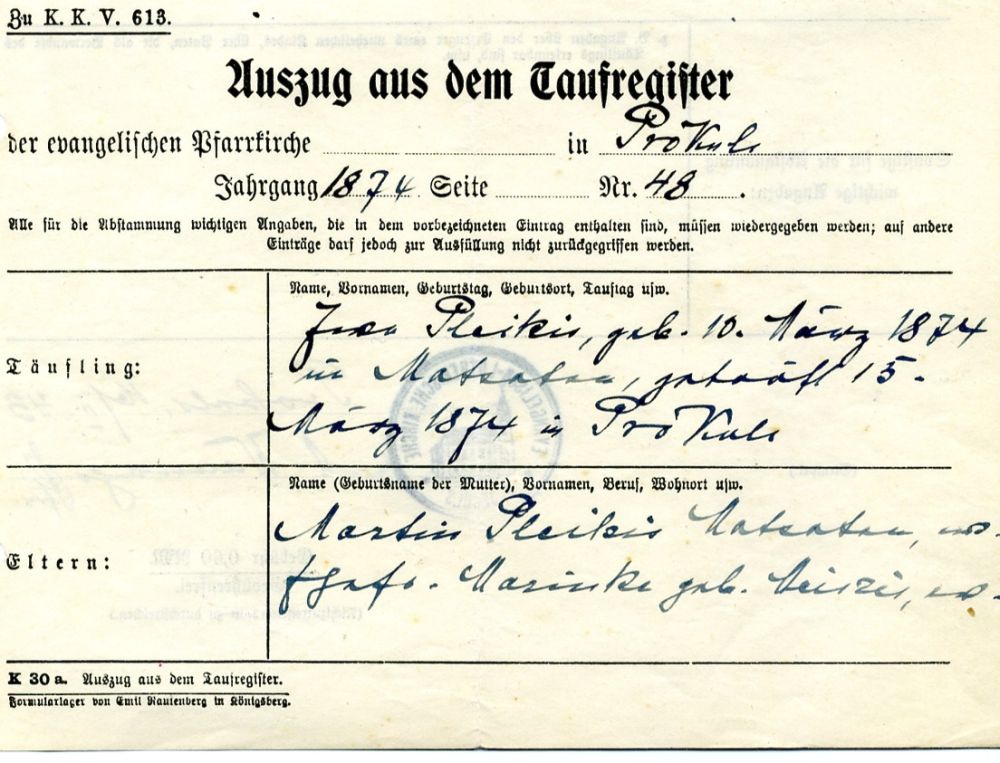 Zu K. K. V. 613.
Auszug aus dem Taufregister
der evangelischen Pfarrkirche in Prökuls
Jahrgang 1874 Seite Nr. 48.
Alle für die Abstammung wichtigen Angaben, die in dem vorbezeichneten Eintrag enthalten sind, müssen wiedergegeben werden; auf andere
Einträge darf jedoch zur Ausfüllung nicht zurückgegriffen werden.
Name, Vornamen, Geburtstag, Geburtsort, Tauftag usw.
Täufling:
Pleikis, geb. 10. März 1874
in, getauft 15.
März 1874 in Prökuls
Name (Geburtsname der Mutter), Vornamen, Beruf, Wohnort usw.
Eltern:
Martin Pleikis
Marinke geb.
K 30 a. Auszug aus dem Taufregister.
Formularlager von Emil Rautenberg in Königsberg.